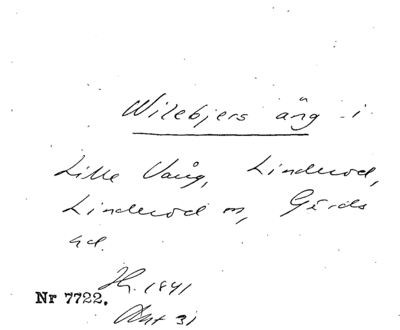 Wilebjers äng i
Lille Vång, Linderod,
Linderod sn, Gärds
hd.
Hf. 1841
Nr 7722.
Akt 31